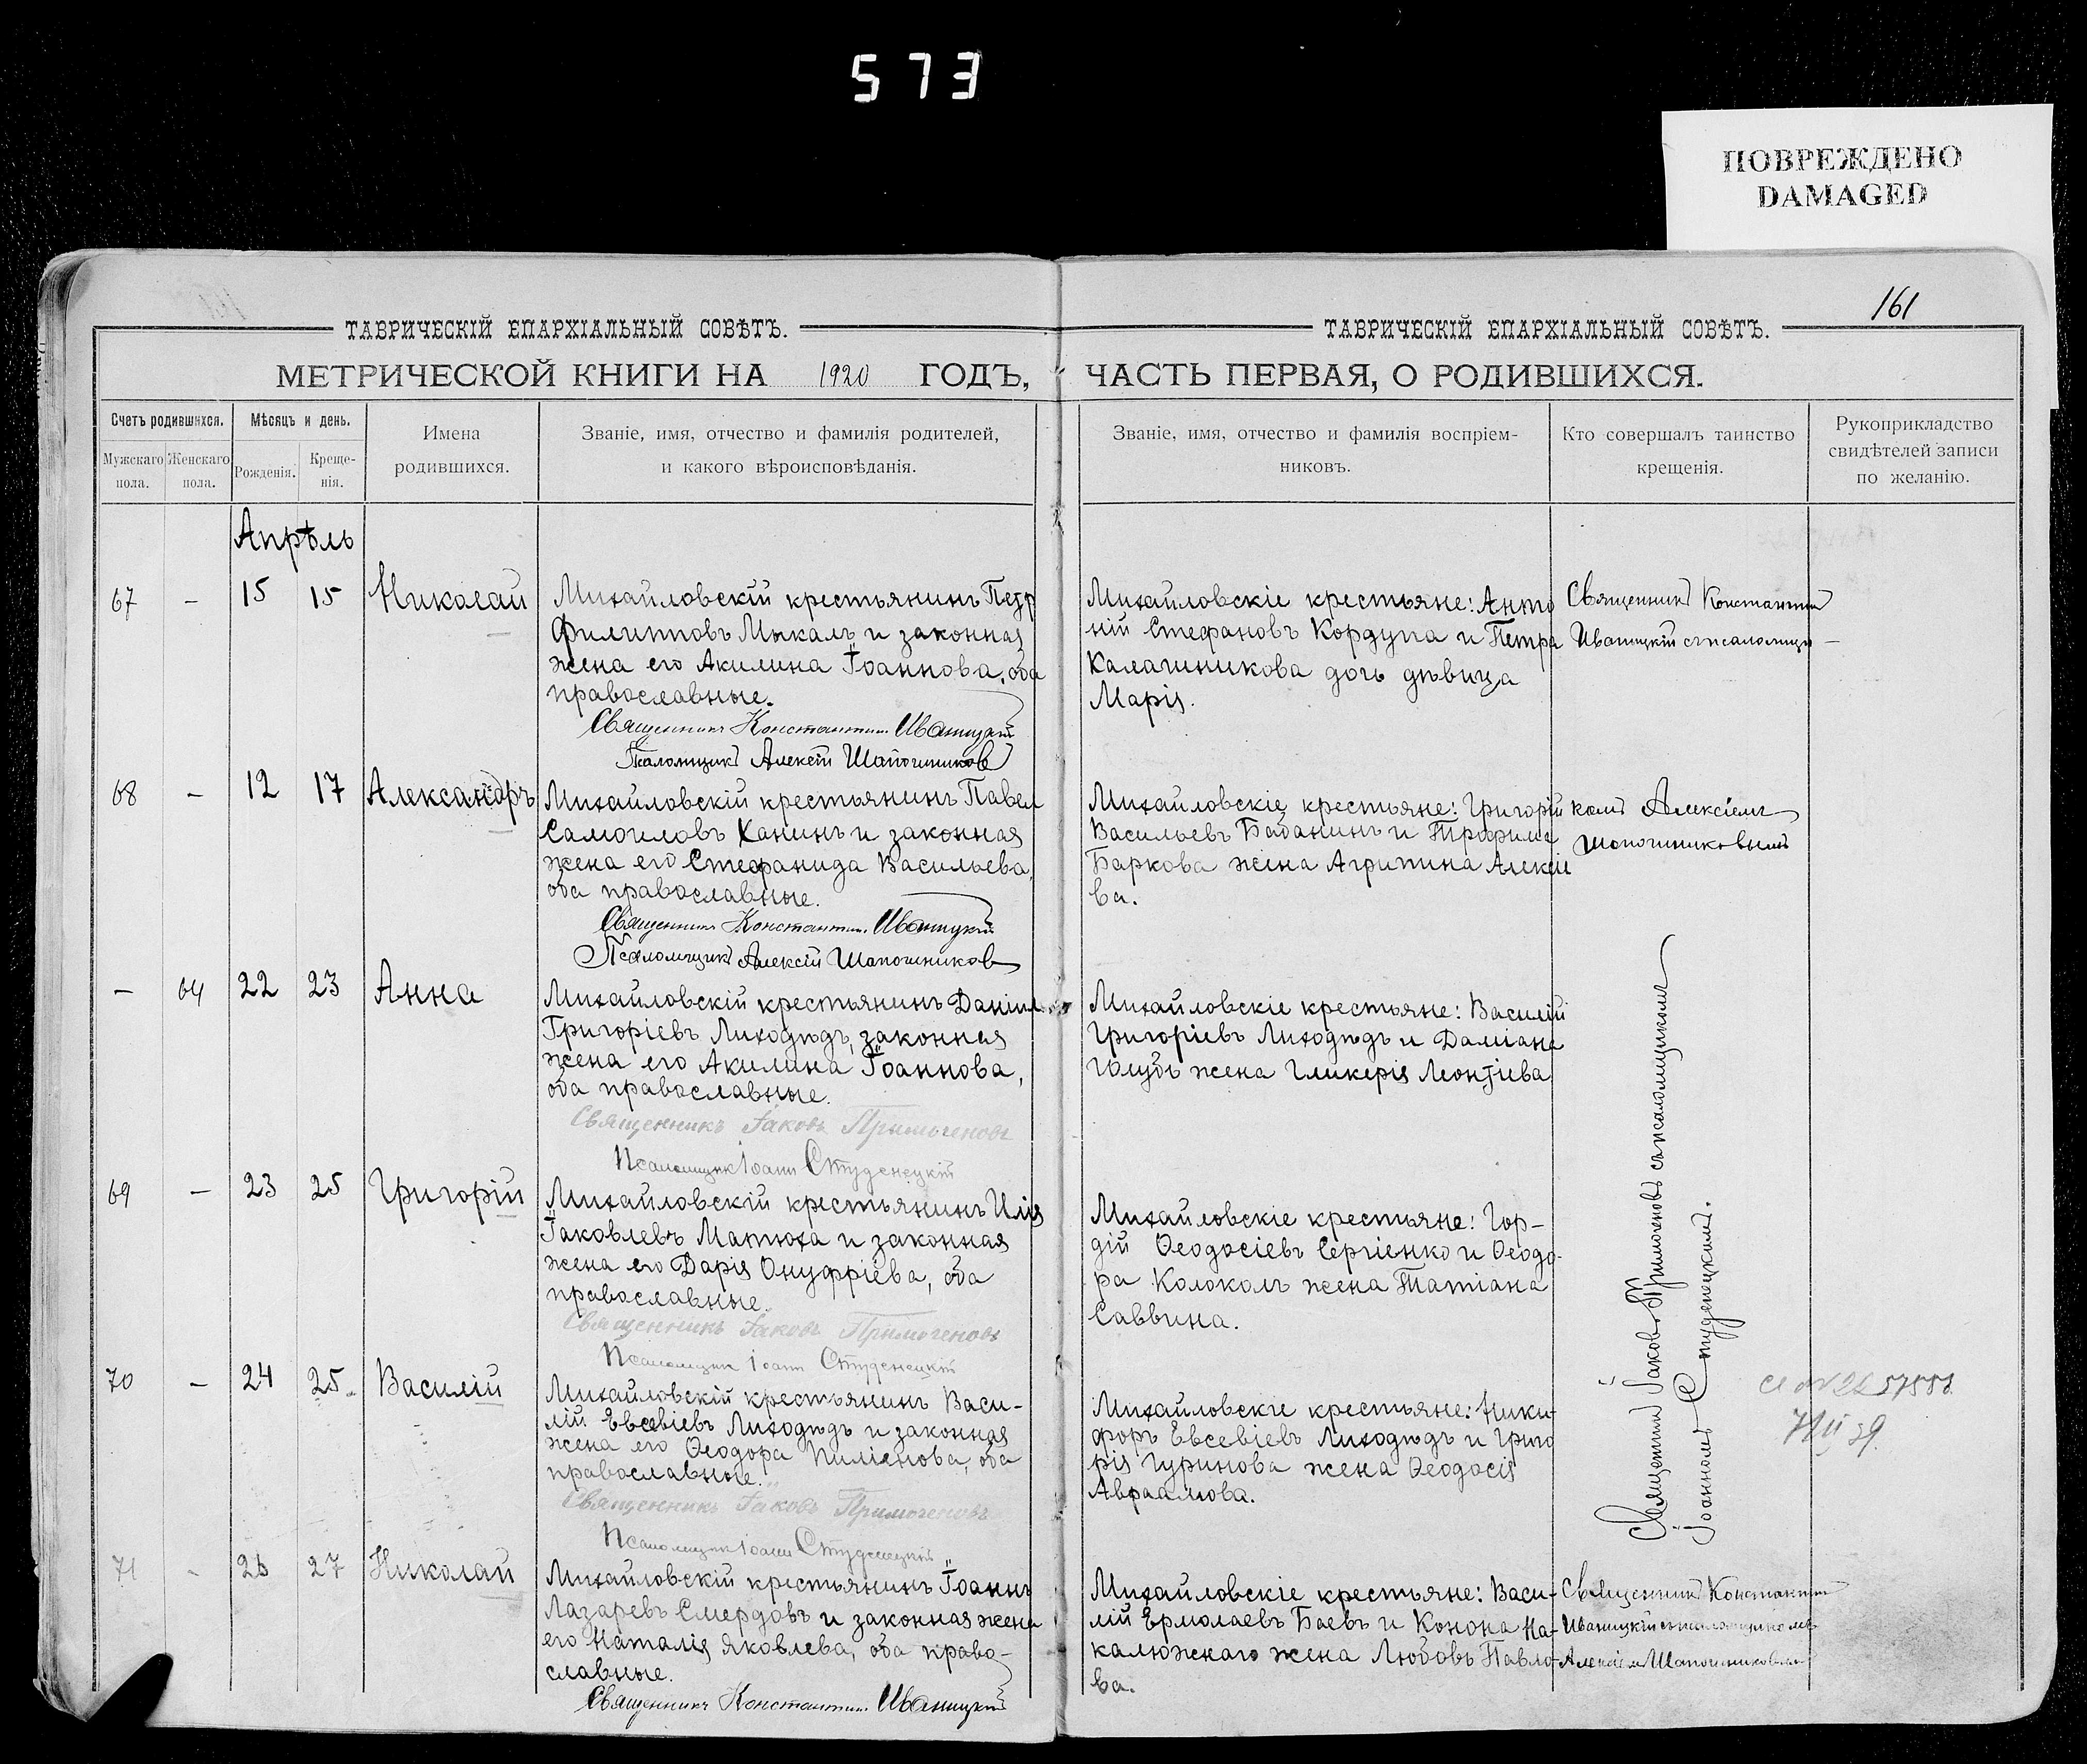 573
ПОВРЕЖДЕНО
DAMAGED
161
ТАВРИЧЕСКІЙ ЕПАРХІАЛЬНЫЙ СОВѢТЪ.
ТАВРИЧЕСКІЙ ЕПАРХІАЛЬНЫЙ СОВѢТЪ.
МЕТРИЧЕСКОЙ КНИГИ НА 1920 ГОДЪ,
ЧАСТЬ ПЕРВАЯ, О РОДИВШИХСЯ.
Счетъ родившихся.
Мужскаго пола.
Женскаго пола.
Мѣсяцъ и день.
Рожденія.
Креще-
нія.
Имена
родившихся.
Званіе, имя, отчество и фамилія родителей,
и какого вѣроисповѣданія.
Званіе, имя, отчество и фамилія воспріем-
никовъ.
Кто совершалъ таинство
крещенія.
Рукоприкладство
свидѣтелей записи
по желанію.
Апрѣль
67 – 15 15 Николай
Михайловскій крестьянинъ Петр
Филипповъ Мыкалъ и законная
жена его Акилина Іоаннова, оба
православные.
Священникъ Константин Иваницкій
Псаломщикъ Алексій Шапошников
Михайловскіе крестьяне: Анто
ній Стефановъ Кордупа и Петра
Калашникова дочь дѣвица
Марія.
Священникъ Константин
Иваницкій съ псаломщи–
68 – 12 17 Александръ
Михайловскій крестьянинъ Павел
Самоиловъ Ханинъ и законная
жена его Стефанида Васильева,
оба православные.
Священникъ Константин Иваницкій
Псаломщикъ Алексій Шапошников
Михайловскіе крестьяне: Григорій
Васильевъ Бабанинъ и Трофима
Баркова жена Агрипина Алексіе
ва.
комъ Алексіемъ
Шапошниковымъ
– 64 22 23 Анна
Михайловскій крестьянинъ Даніил
Григоріевъ Лиходѣдъ, законная
жена его Акилина Іоаннова,
оба православные.
Священникъ Іаковъ Примогеновъ
Псаломщик Іоанн Студенецкій
Михайловскіе крестьяне: Василій
Григоріевъ Лиходѣдъ и Даміана
Голубь жена Гликерія Леонтіева
Священникъ Іаковъ Примогеновъ съ псаломщикомъ
Іоанномъ Студенецкимъ.
69 – 23 25 Григорій
Михайловскій крестьянинъ Илія
Іаковлевъ Матюха и законная
жена его Дарія Онуфріева, оба
православные.
Священникъ Іаковъ Примогеновъ
Псаломщик Іоанн Студенецкій
Михайловскіе крестьяне: Гор–
дій Ѳеодосіевъ Сергіенко и Ѳеодо-
ра Колоколъ жена Татіана
Саввина.
70 – 24 25 Василій
Михайловскій крестьянинъ Васи-
лій Евсевіевъ Лиходѣдъ и законная
жена его Ѳеодора Пиліснова, оба
православные.
Священникъ Іаковъ Примогеновъ
Псаломщик Іоанн Студенецкій
Михайловскіе крестьяне: Ники-
форъ Евсевіевъ Лиходѣдъ и Григо
рія Гуринова жена Ѳеодосія
Авраамова.
71 – 26 27 Николай
Михайловскій крестьянинъ Іоаннъ
Лазаревъ Смердовъ и законная жена
его Наталія Яковлева, оба право-
славные.
Священникъ Константин Иваницкій
Михайловскіе крестьяне: Васи-
лій Ермолаевъ Баевъ и Конона На-
калюжнаго жена Любовь Павло-
ва.
Священникъ Константин
Иваницкій съ псаломщикомъ
Алексіемъ Шапошниковым